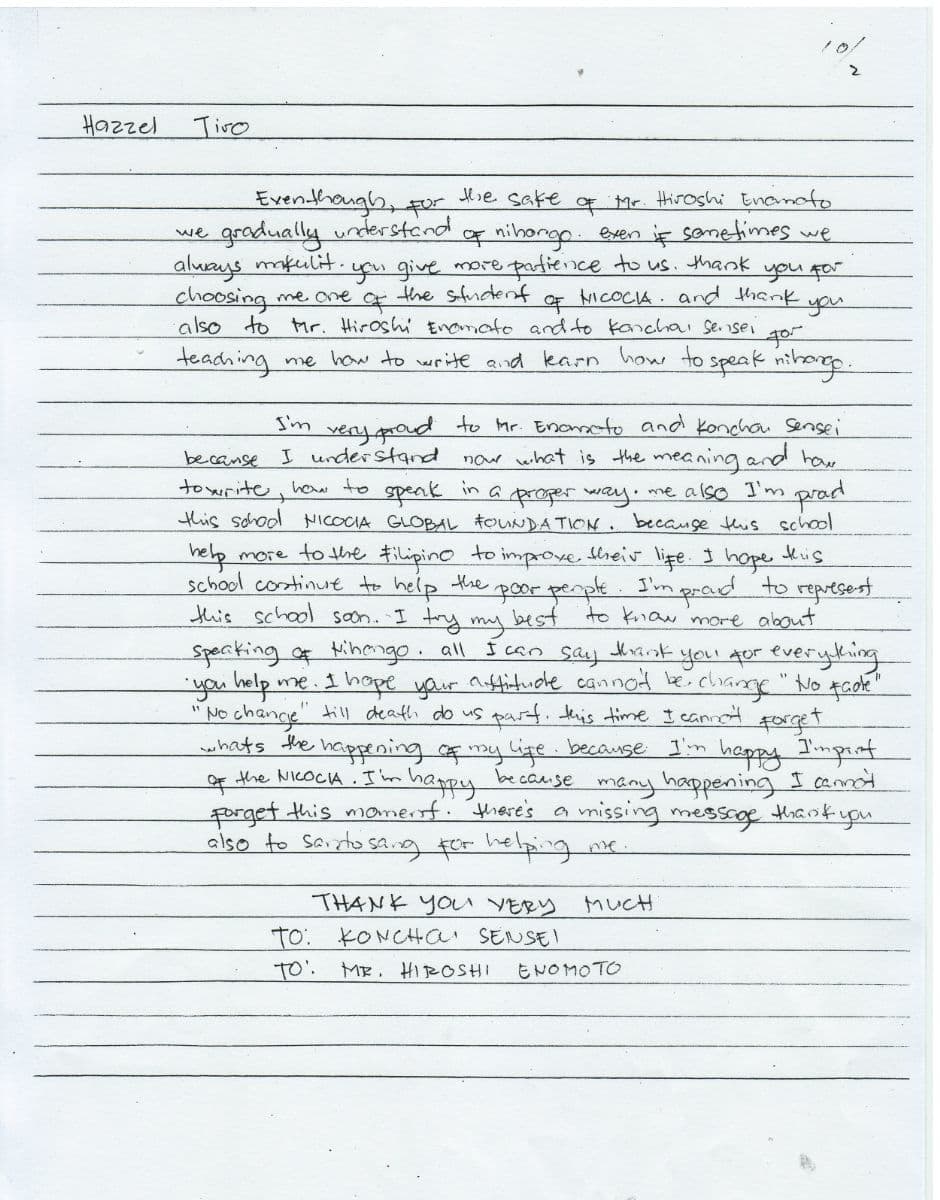 10/
2
Hazzel Tiro
Eventhough, for the sake of Mr. Hiroshi Enomoto
we gradually understand of nihongo. even if sometimes we
always makulit. you give more patience to us. thank you for
choosing me one of the student of NICOCIA. and thank you
also to Mr. Hiroshi Enomoto and to Konchai Sensei for
teaching me how to write and learn how to speak nihongo.
I'm very proud to Mr. Enomoto and Konchou Sensei
because I understand now what is the meaning and how
to write, how to speak in a proper way. me also I'm proud
this school NICOCIA GLOBAL FOUNDATION. because this school
help more to the filipino to improve their life. I hope this
school continue to help the poor people. I'm proud to represent
this school soon. I try my best to know more about
speaking of Nihongo. all I can say thank you for everything
you help me. I hope your attitude cannot be change "No fade"
"No change" till death do us part. this time I cannot forget
whats the happening of my life. because I'm happy I'm part
of the NICOCIA. I'm happy because many happening I cannot
forget this moment. there's a missing message thank you
also to Saito sang for helping me.
THANK YOU VERY MUCH
TO: KONCHAI SENSEI
TO: MR. HIROSHI ENOMOTO